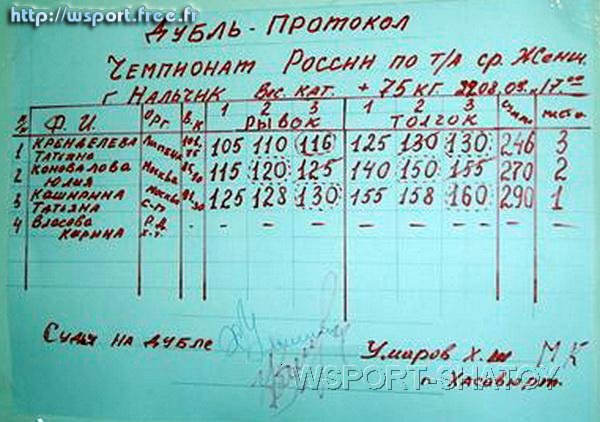 http://wsport.free.fr
ДУБЛЬ - ПРОТОКОЛ
ЧЕМПИОНАТ РОССИИ ПО Т/А СР. ЖЕНЩ.
Г НАЛЬЧИК ВЕС. КАТ. + 75 КГ 17.00
Ф. И. ОРГ. В.К 1 2 3 1 2 3 СУММА МЕСТО
РЫВОК ТОЛЧОК
1 КРЕНДЕЛЕВА ТАТЬЯНА 105 110 116 125 130 130 246 3
2 КОНОВАЛОВА ЮЛИЯ МОСКВА 115 120 125 140 150 155 270 2
3 КАШИРИНА ТАТЬЯНА МОСКВА С-П 125 128 130 155 158 160 290 1
4 ВЛАСОВА КАРИНА Р.Д. Х-Т. – – – – – – – –
СУДЬЯ НА ДУБЛЕ УМАРОВ Х. Ш МК
Г. ХАСАВЮРТ.
WSPORT-SHATOY